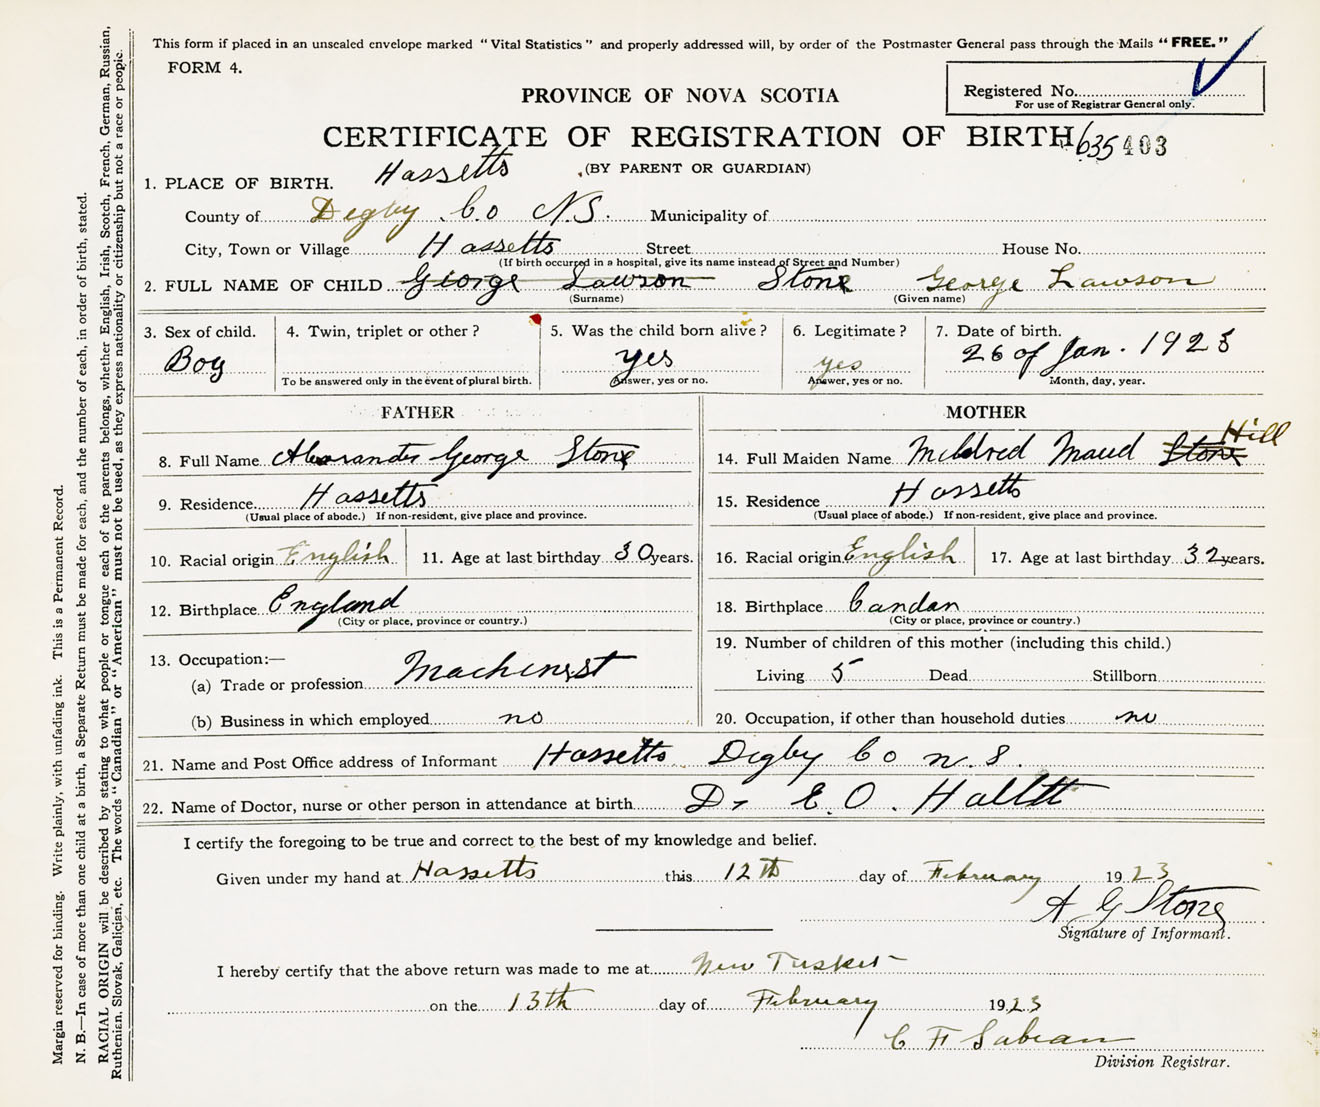 This form if placed in an unsealed envelope marked "Vital Statistics" and properly addressed will, by order of the Postmaster General pass through the Mails "FREE."
FORM 4.
Registered No.
For use of Registrar General only.
PROVINCE OF NOVA SCOTIA
CERTIFICATE OF REGISTRATION OF BIRTH 635 403
Hassetts (BY PARENT OR GUARDIAN)
1. PLACE OF BIRTH.
County of Digby Co N.S. Municipality of
City, Town or Village Hassetts Street House No.
(If birth occurred in a hospital, give its name instead of Street and Number)
2. FULL NAME OF CHILD George Lawson Stone George Lawson
(Surname) (Given name)
3. Sex of child. 4. Twin, triplet or other? 5. Was the child born alive? 6. Legitimate? 7. Date of birth.
Boy yes yes 26 of Jan. 1923
To be answered only in the event of plural birth. Answer, yes or no. Answer, yes or no. Month, day, year.
FATHER MOTHER
8. Full Name Alexander George Stone 14. Full Maiden Name Mildred Maud Stone Hill
9. Residence Hassetts 15. Residence Hassetts
(Usual place of abode.) If non-resident, give place and province. (Usual place of abode.) If non-resident, give place and province.
10. Racial origin English 11. Age at last birthday 30 years. 16. Racial origin English 17. Age at last birthday 32 years.
12. Birthplace England 18. Birthplace Candan
(City or place, province or country.) (City or place, province or country.)
19. Number of children of this mother (including this child.)
13. Occupation:—
(a) Trade or profession Machinest Living 5 Dead Stillborn
(b) Business in which employed no 20. Occupation, if other than household duties no
21. Name and Post Office address of Informant Hassetts Digby Co n.S.
22. Name of Doctor, nurse or other person in attendance at birth Dr E.O. Hallett
I certify the foregoing to be true and correct to the best of my knowledge and belief.
Given under my hand at Hassetts this 12th day of February 1923
A G Stone
Signature of Informant.
I hereby certify that the above return was made to me at New Tusket
on the 13th day of February 1923
C F Sabean
Division Registrar.
Margin reserved for binding. Write plainly, with unfading ink. This is a Permanent Record.
N. B.—In case of more than one child at a birth, a Separate Return must be made for each, and the number of each, in order of birth, stated.
RACIAL ORIGIN will be described by stating to what people or tongue each of the parents belongs, whether English, Irish, Scotch, French, German, Russian,
Ruthenian, Slovak, Galician, etc. The words "Canadian" or "American" must not be used, as they express nationality or citizenship but not a race or people.